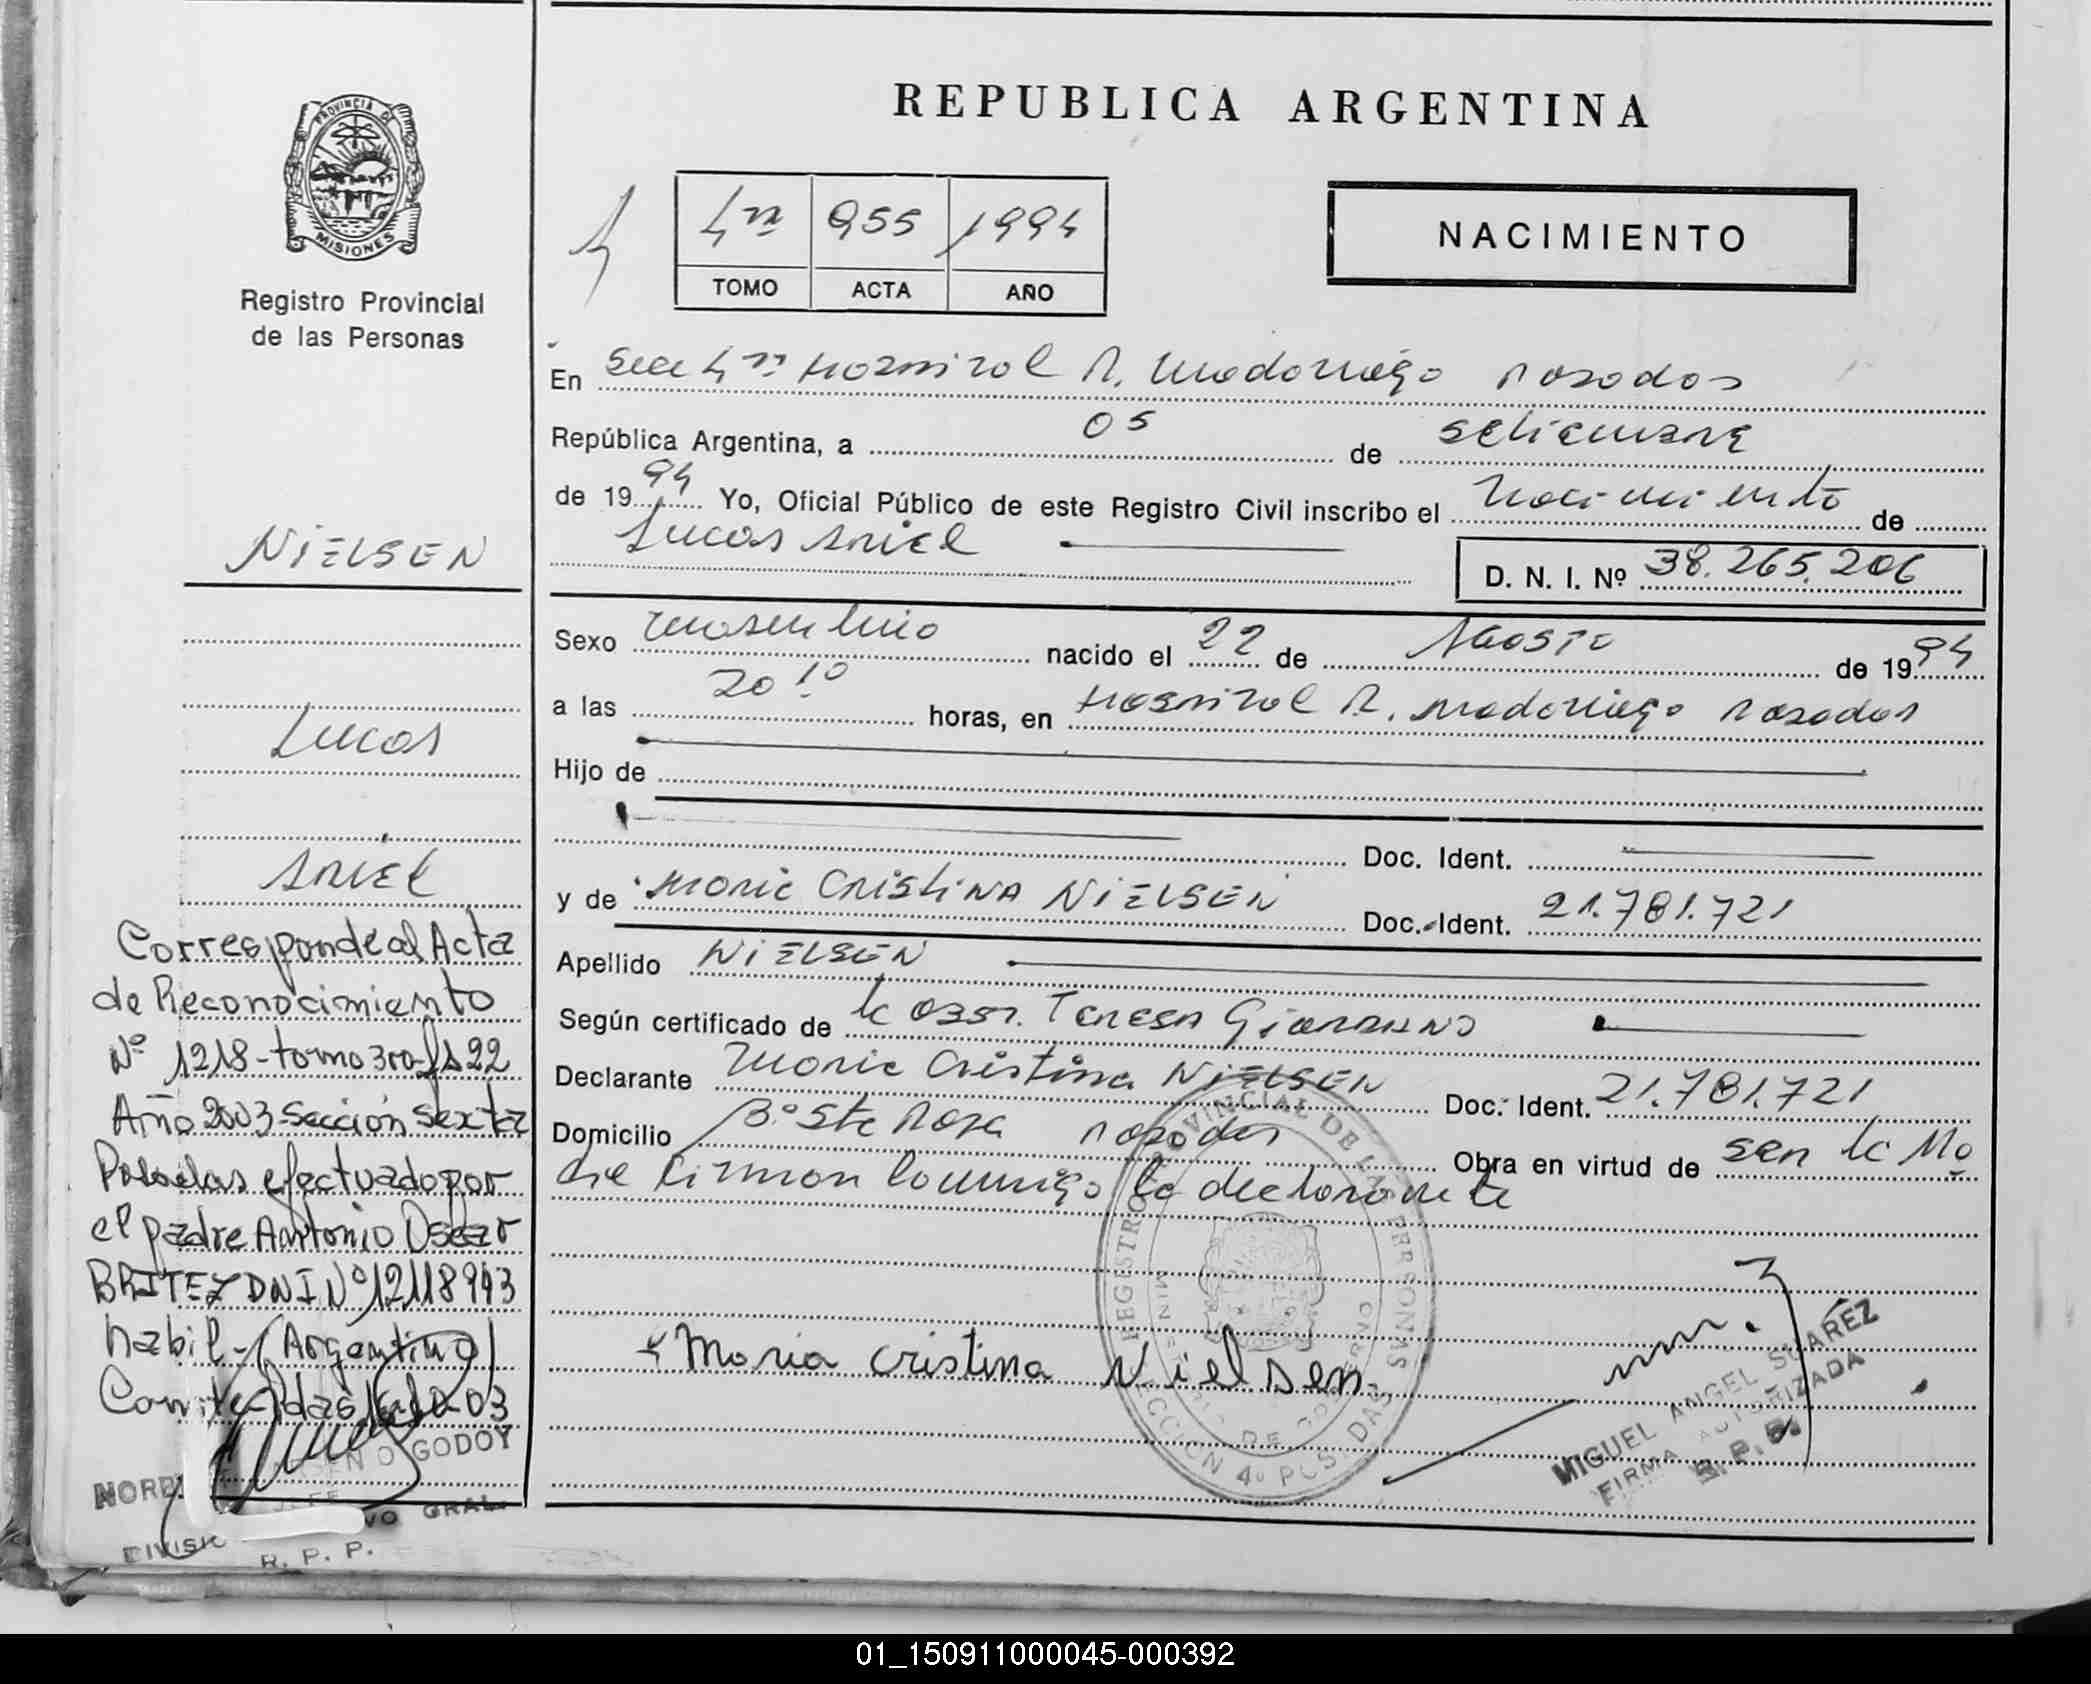 REPUBLICA ARGENTINA
PROVINCIA DE
MISIONES
Registro Provincial
de las Personas
4ta 955 1994
TOMO ACTA AÑO
NACIMIENTO
En Secc 4ta Hospital R. Madariaga Posadas
República Argentina, a 05 de Setiembre
de 1994 Yo, Oficial Público de este Registro Civil inscribo el Nacimiento de
Lucas Ariel
D. N. I. Nº 38.265.206
Sexo Masculino nacido el 22 de Agosto de 1994
a las 20 10 horas, en Hospital R. Madariaga Posadas
Hijo de
Doc. Ident.
y de Maria Cristina NIELSEN Doc. Ident. 21.781.721
Apellido NIELSEN
Según certificado de la Obst. Teresa
Declarante Maria Cristina NIELSEN Doc. Ident. 21.781.721
Domicilio Bº Sta Rosa Posadas Obra en virtud de ser la Ma
dre Firman conmigo la declarante
Maria Cristina Nielsen
REGISTRO PROVINCIAL DE LAS PERSONAS
MINISTERIO DE GOBIERNO
SECCION 4º POSADAS
MIGUEL ANGEL SUAREZ
FIRMA AUTORIZADA
R. P. P.
NIELSEN
Lucas
Ariel
Corresponde al Acta
de Reconocimiento
Nº 1218-tomo 3ro-fs 22
Año 2003-Sección Sexta
Posadas efectuado por
el padre Antonio Oscar
BRITEZ DNI Nº 12118943
habil-(Argentino)
03
GODOY
JEFE
GRAL.
R. P. P.
01_150911000045-000392